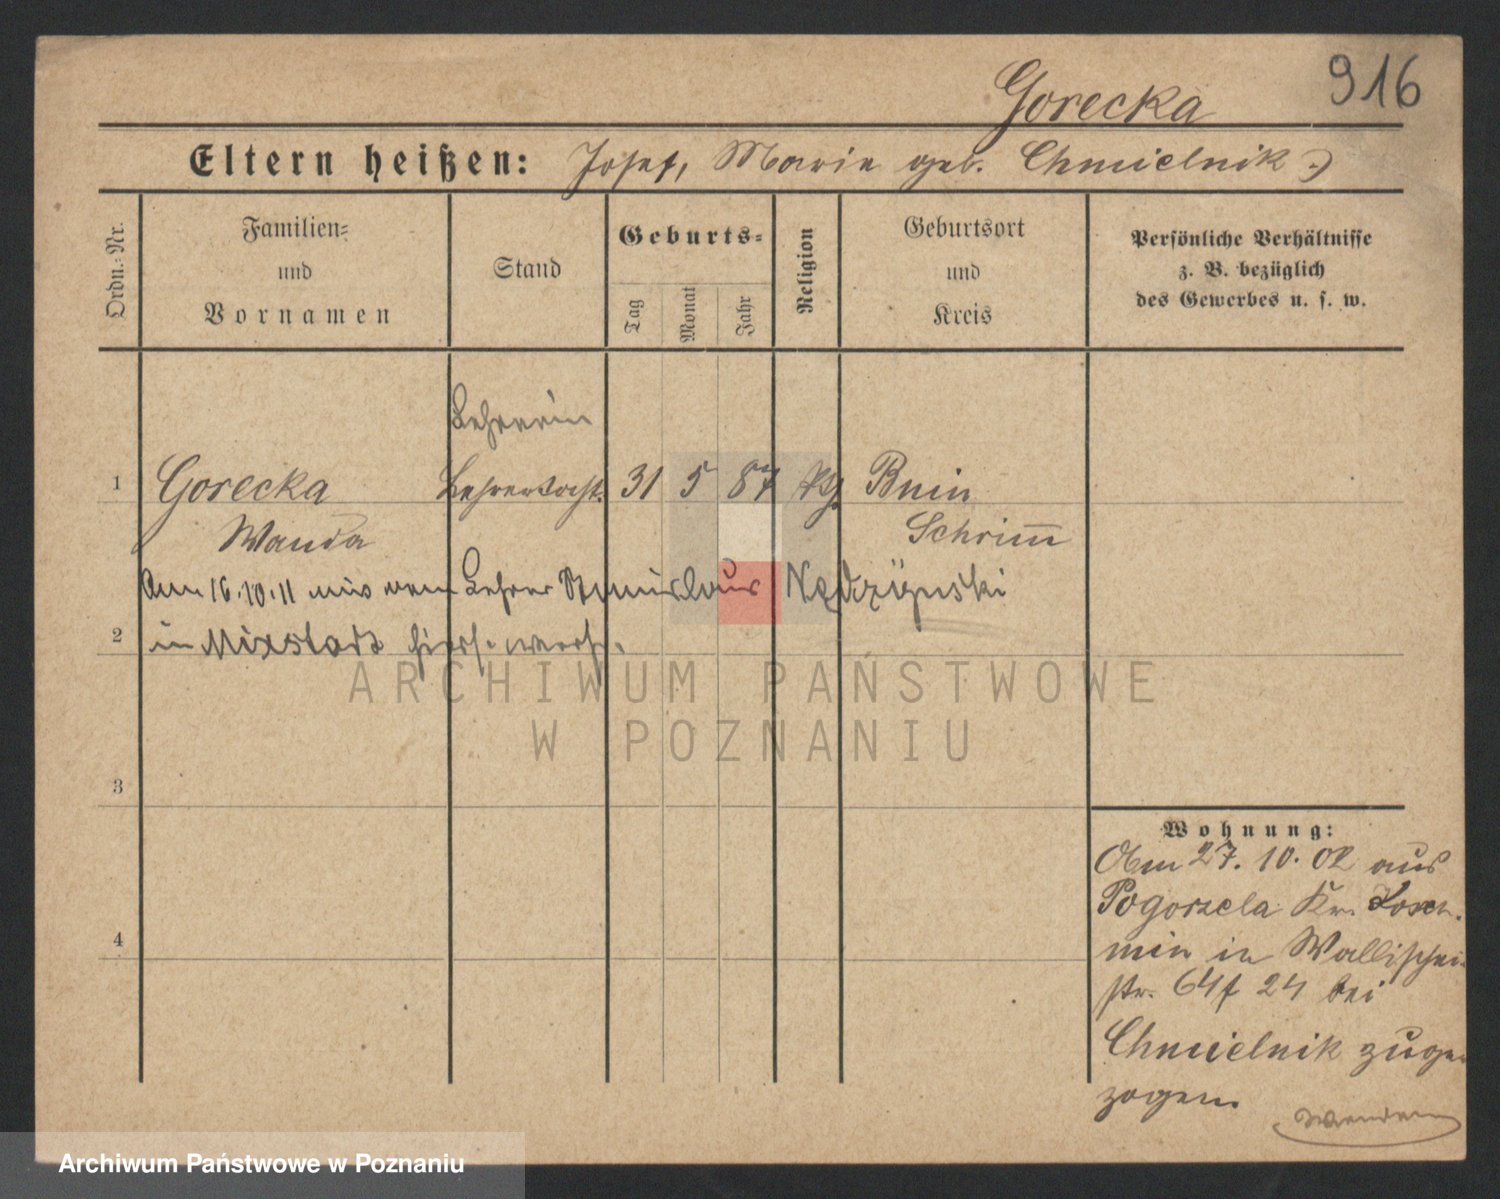 916
Gorecka
Eltern heißen: Josef, Marie geb. Chmielnik
Ordn.-Nr.
Familien-
und
Vornamen
Stand
Geburts-
Tag
Monat
Jahr
Religion
Geburtsort
und
Kreis
Persönliche Verhältnisse
z. B. bezüglich
des Gewerbes u. s. w.
Lehrerin
1 Gorecka Lehrertocht. 31 5 87 Bnin
Wanda Schrim̅
Am 16.10.11 mit dem Lehrer Stanislaus Nędzyński
2 in Mixstadt
3
4
Wohnung:
Am 27. 10. 02 aus
Pogorzela Kr. Kosch-
min in Wallischei-
str. 64/ 24 bei
Chmielnik zuge-
zogen.
ARCHIWUM PAŃSTWOWE
W POZNANIU
Archiwum Państwowe w Poznaniu